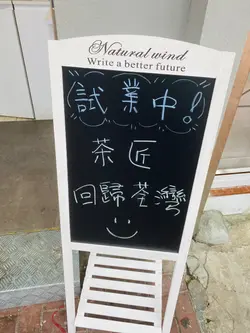 Natural wind
Write a better future
試業中!
茶匠
回歸荃灣